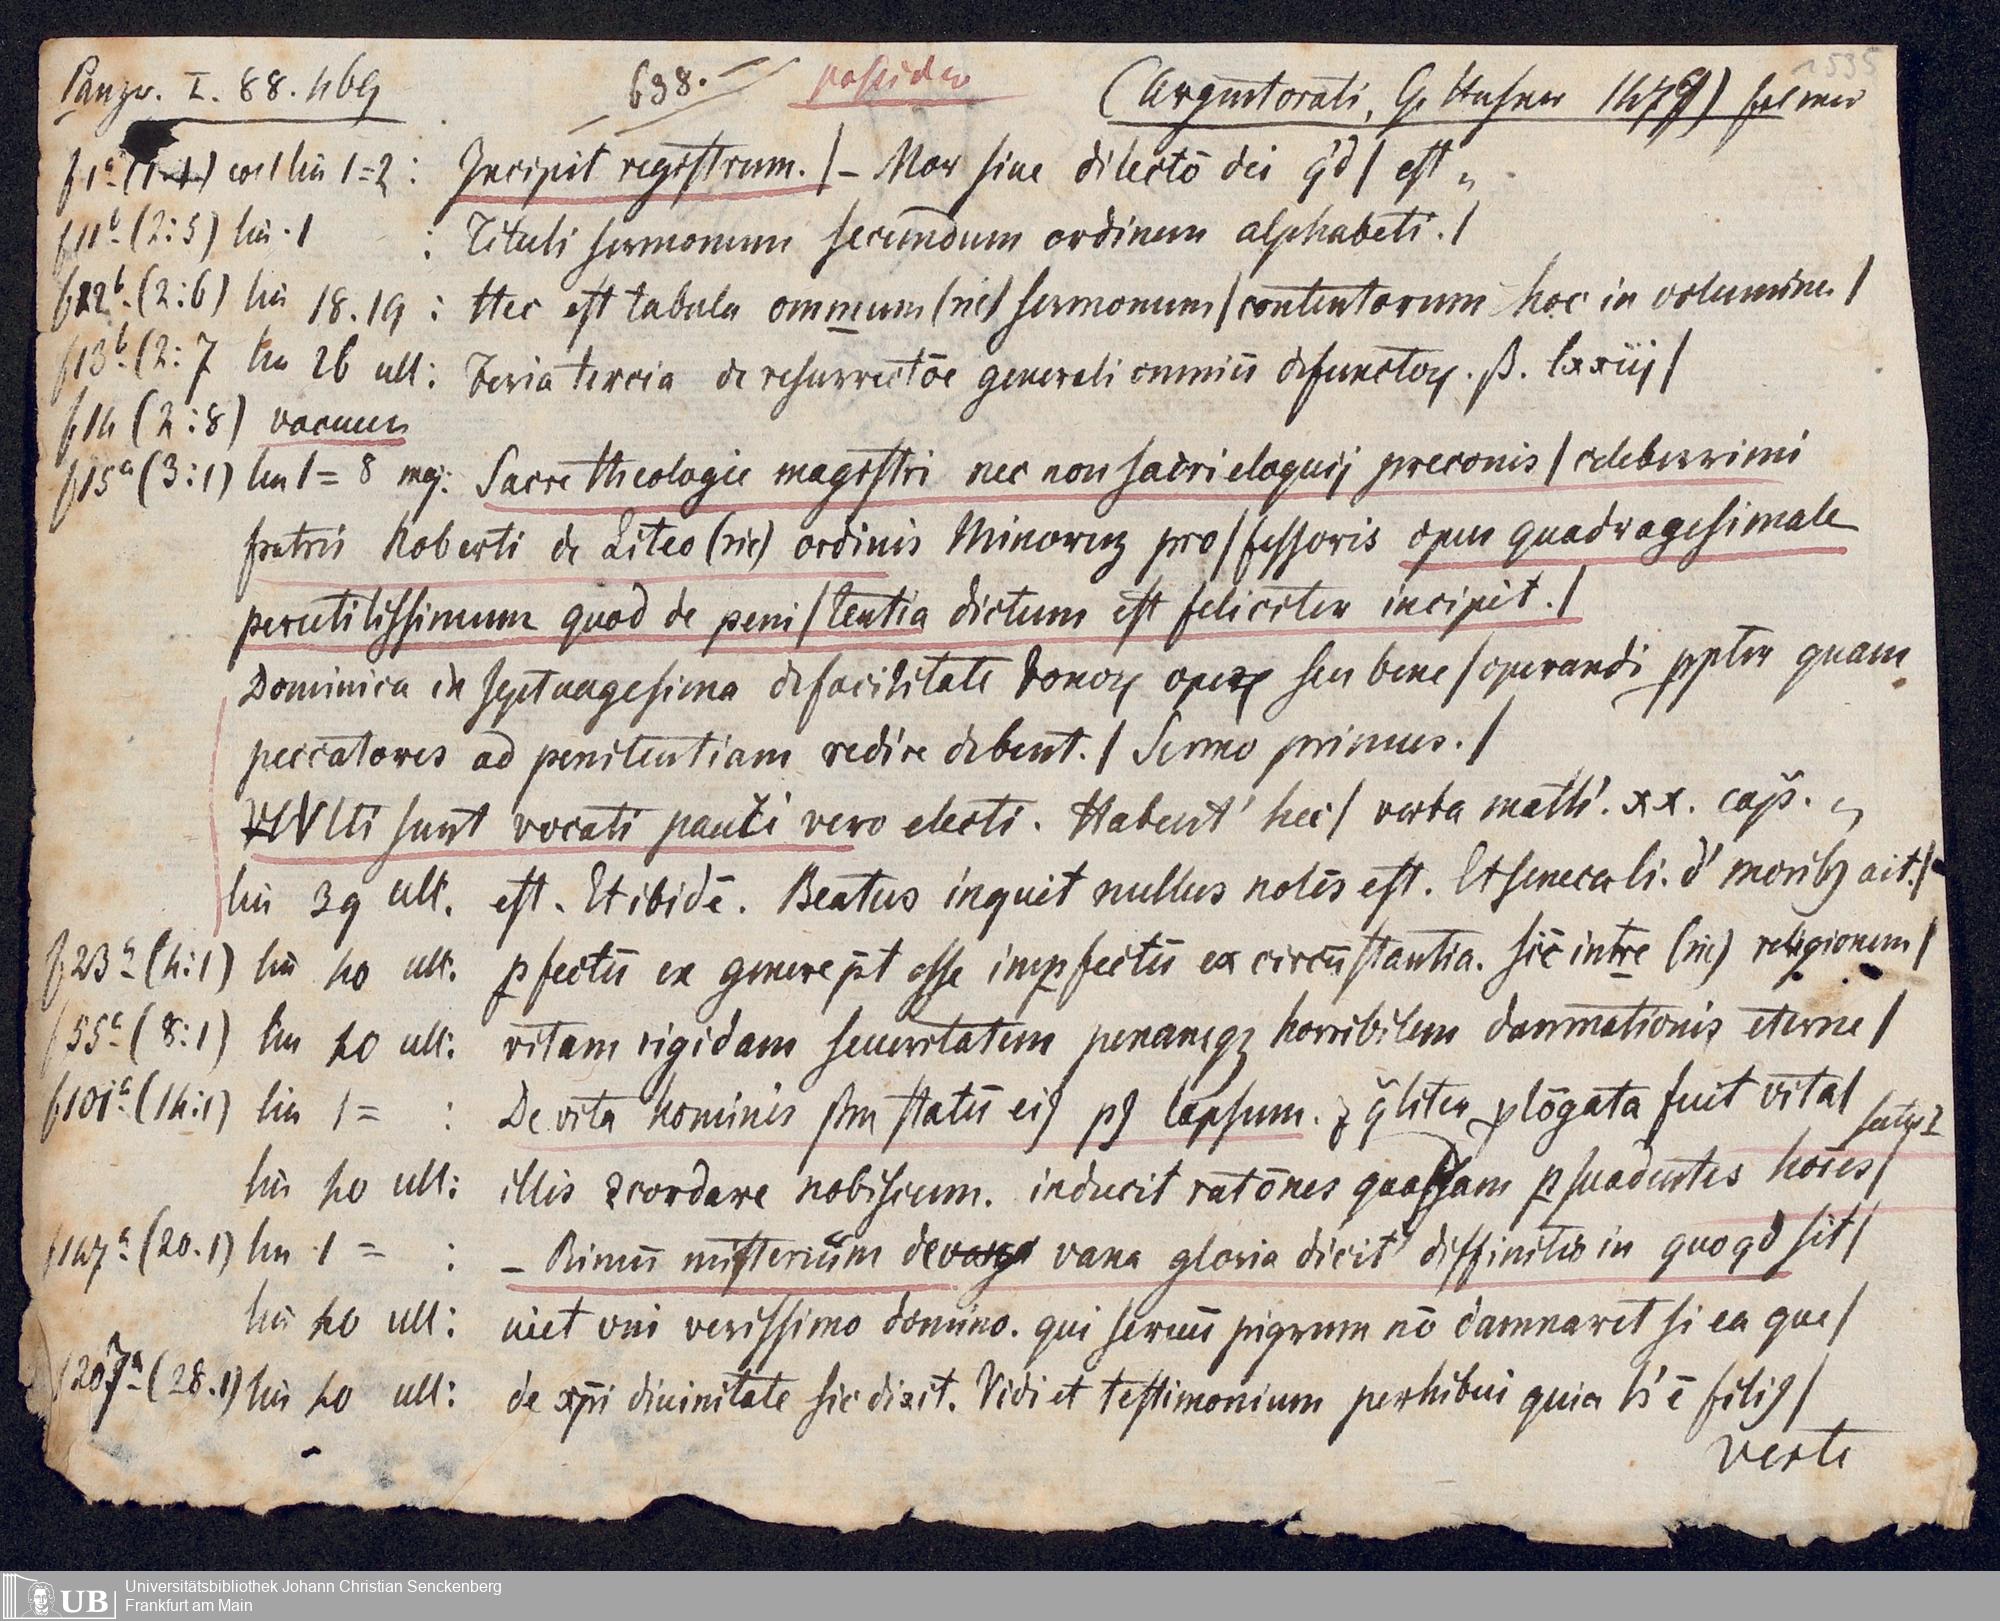 Panzer. I. 88. 469
638. possideo (Argentorati, G. Husner 1479) fol min
1535
f 1ᵃ (1:1) col 1 lin 1=2 : Incipit registrum. / — Mor sine dilectō dei qd / est „
f 11ᵇ (2:5) lin. 1 : Tituli sermonum secundum ordinem alphabeti. /
f 12ᵇ (2:6) lin 18. 19 : Hec est tabula ommum (sic) sermonum / contentorum hoc in volumine /
f 13ᵇ (2:7 lin 26 ult : Feria tercia de resurrectōe generali omniū defunctoꝝ. ß. lxxiij /
f 14 (2:8) vacuum
f 15ᵃ (3:1) lin 1 = 8 maj: Sacre theologie magistri nec non sacri eloquij preconis / celeberrimi
fratris Roberti de Liteo (sic) ordinis Minoruꝫ pro / fessoris opus quadragesimale
perutilissimum quod de peni / tentia dictum est feliciter incipit. /
Dominica in septuagesima de facilitate bonoꝝ opeꝝ seu bene / operandi ppter quam
peccatores ad penitentiam redire debent. / Sermo primus. /
MVlti sunt vocati pauci vero electi. Habent' hec / verba matth'. xx. cap. „
lin 39 ult. est. Et ibidē. Beatus inquit nullus nolēs est. Et seneca li. d' moribꝫ ait. /
f 23ᵃ (4:1) lin 40 ult. pfectū ex genere pt esse impfectū ex circūstantia. sic intre (sic) religionem /
f 55ᵃ (8:1) lin 40 ult: vitam rigidam seueritatem penamqꝫ horribilem damnationis eterne /
f 101ᵃ (14:1) lin 1 = : De vita hominis ſm statū eiꝰ pꝰ lapsum. ꝫ qliter plōgata fuit vita /
lin 40 ult: illis ꝯcordare nobiscum. inducit ratōnes quasdam psuadentes hoīes /
f 147ᵃ (20.1) lin. 1 = : — Rimū misterium de vana gloria dicit' diffinitio in quo qd sit /
lin 40 ult: niet vni verissimo domino. qui seruū pigrum nō damnaret si ea que /
f 207ᵃ (28.1) lin 40 ult: de xpi diuinitate sic dixit. Vidi et testimonium perhibui quia h' ē filiꝰ /
verte
UB Universitätsbibliothek Johann Christian Senckenberg
Frankfurt am Main